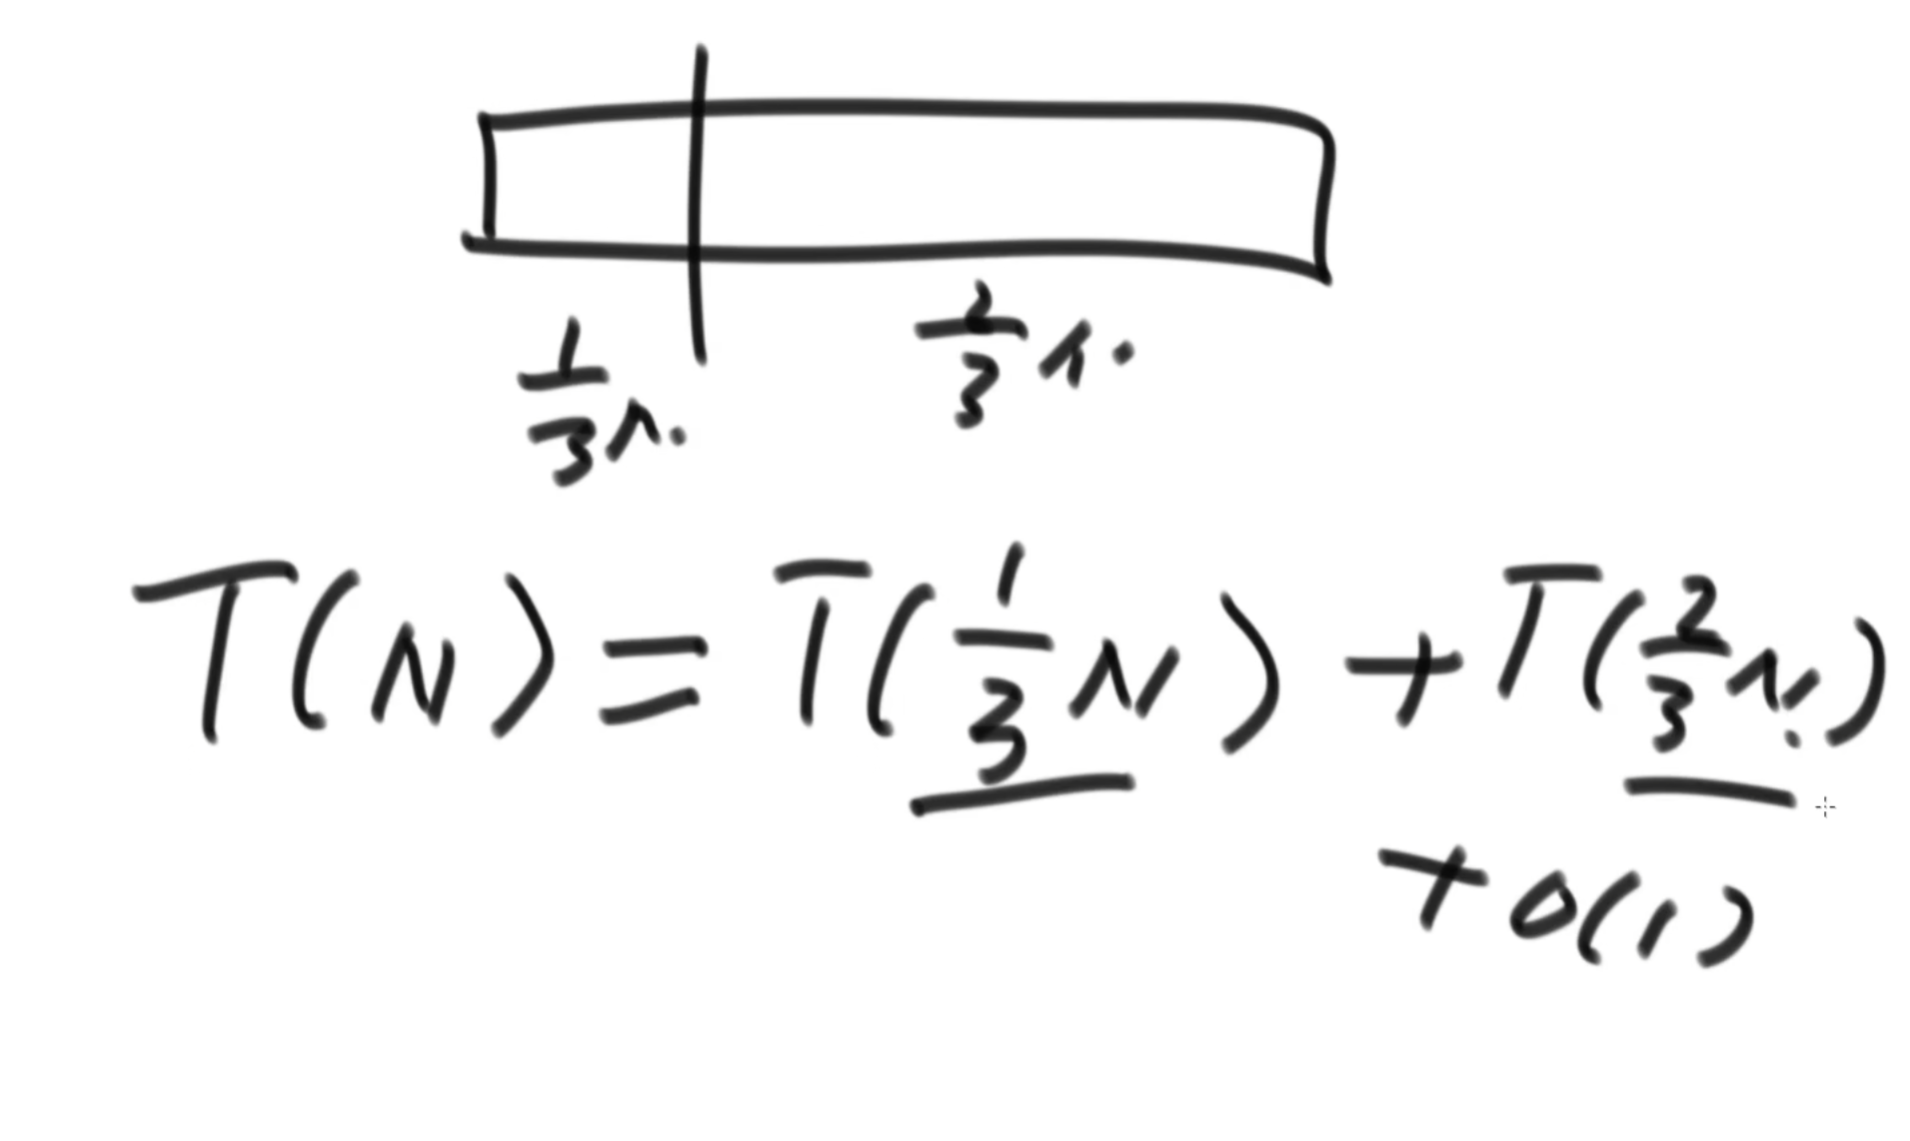 1/3 N.
2/3 N.
T(N) = T(1/3 N) + T(2/3 N.)
+ O(1)